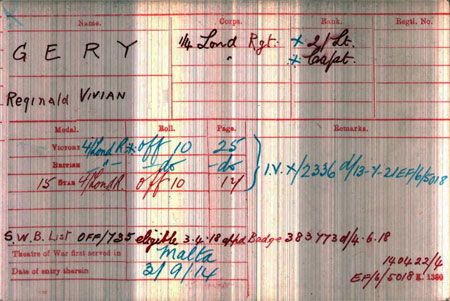 Name. Corps. Rank. Regtl. No.
GERY 1/4 Lond Rgt. X 2/Lt.
" X Capt.
Reginald VIVIAN
Medal. Roll. Page. Remarks.
VICTORY 4/Lond R. X off 10 25
BRITISH -"- -do- -do-
15 STAR 4/Lond R. off 10 I.V. X/2336 d/13-Y-21 EF/6/5018
S.W.B. List OFF/735 eligible 3.4.18 appd Badge 383773 d/4.6.18
Theatre of War first served in Malta
Date of entry therein 3/9/14
140422/4
EF/6/5018 K. 1380